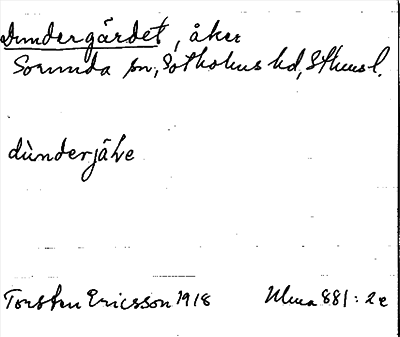 Dundergärdet, åker
Sorunda sn, Sotholms hd, Sthms l.
dùnderjäḷe
Torsten Ericsson 1918 Ulma 881:2e